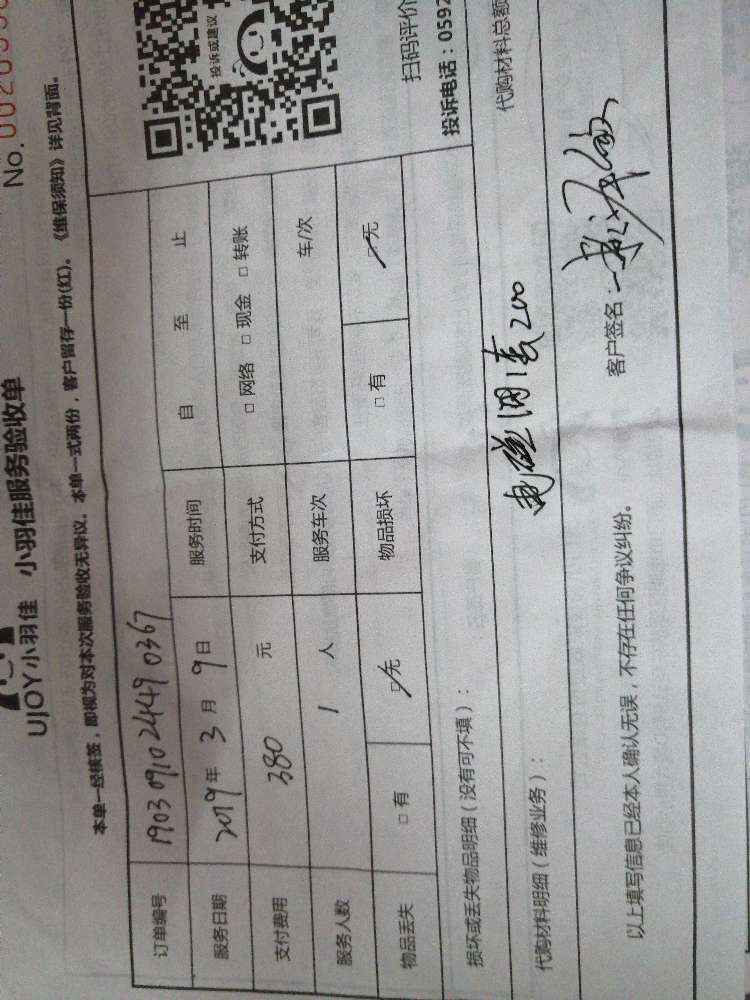 No. 0020
UJOY小羽佳 小羽佳服务验收单
本单一经接签，即视为对本次服务验收无异议。本单一式两份，客户留存一份(红)。《维保须知》详见背面。
订单编号 1903 0910 2449 0367
服务日期 2019年 3 月 9 日 服务时间 自 至 止
支付费用 380 元 支付方式 □ 网络 □ 现金 □ 转账
服务人数 1 人 服务车次 车/次
物品丢失 □ 有 □ 无 物品损坏 □ 有 □ 无
投诉或建议
扫码评价
投诉电话：0592
损坏或丢失物品明细（没有可不填）：
代购材料明细（维修业务）： 200 代购材料总额
以上填写信息已经本人确认无误，不存在任何争议纠纷。 客户签名：